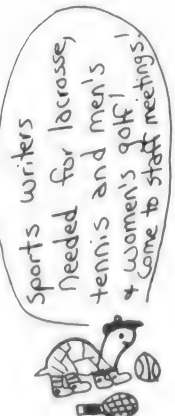 sports writers
needed for lacrosse,
tennis and men's
& women's golf!
Come to staff meetings!